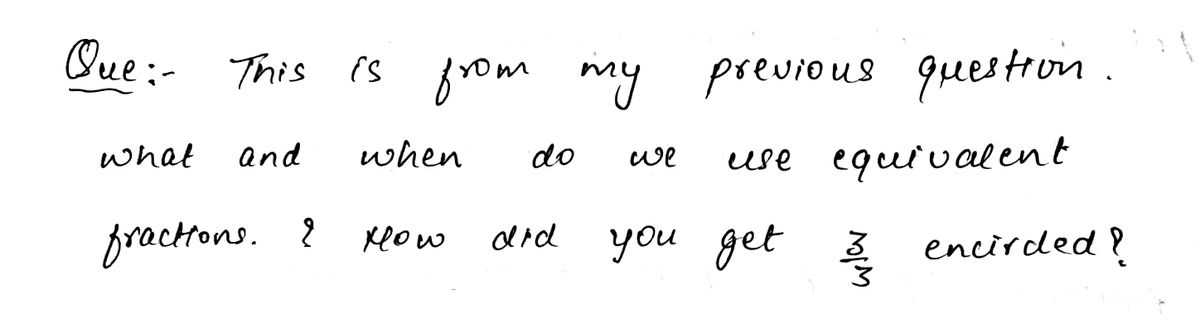 Que:- This is from my previous question.
what and when do we use equivalent
fractions. ? How did you get 3/3 encircled?